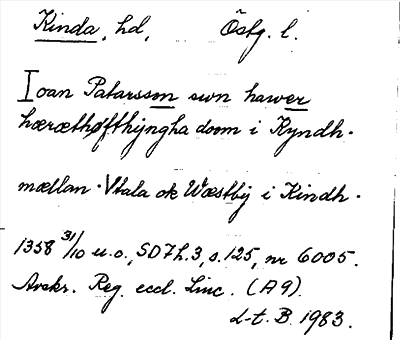 Kinda, hd, Östg. l.
Ioan Patarsson swn hawer
hæræthøfthyngha doom i Kyndh.
mællan. Vtala ok Wæstby i Kindh.
1358 31/10 u.o., SD 7 h. 3, s. 125, nr 6005.
Avskr. Reg. eccl. Linc. (A 9).
L-t. B. 1983.